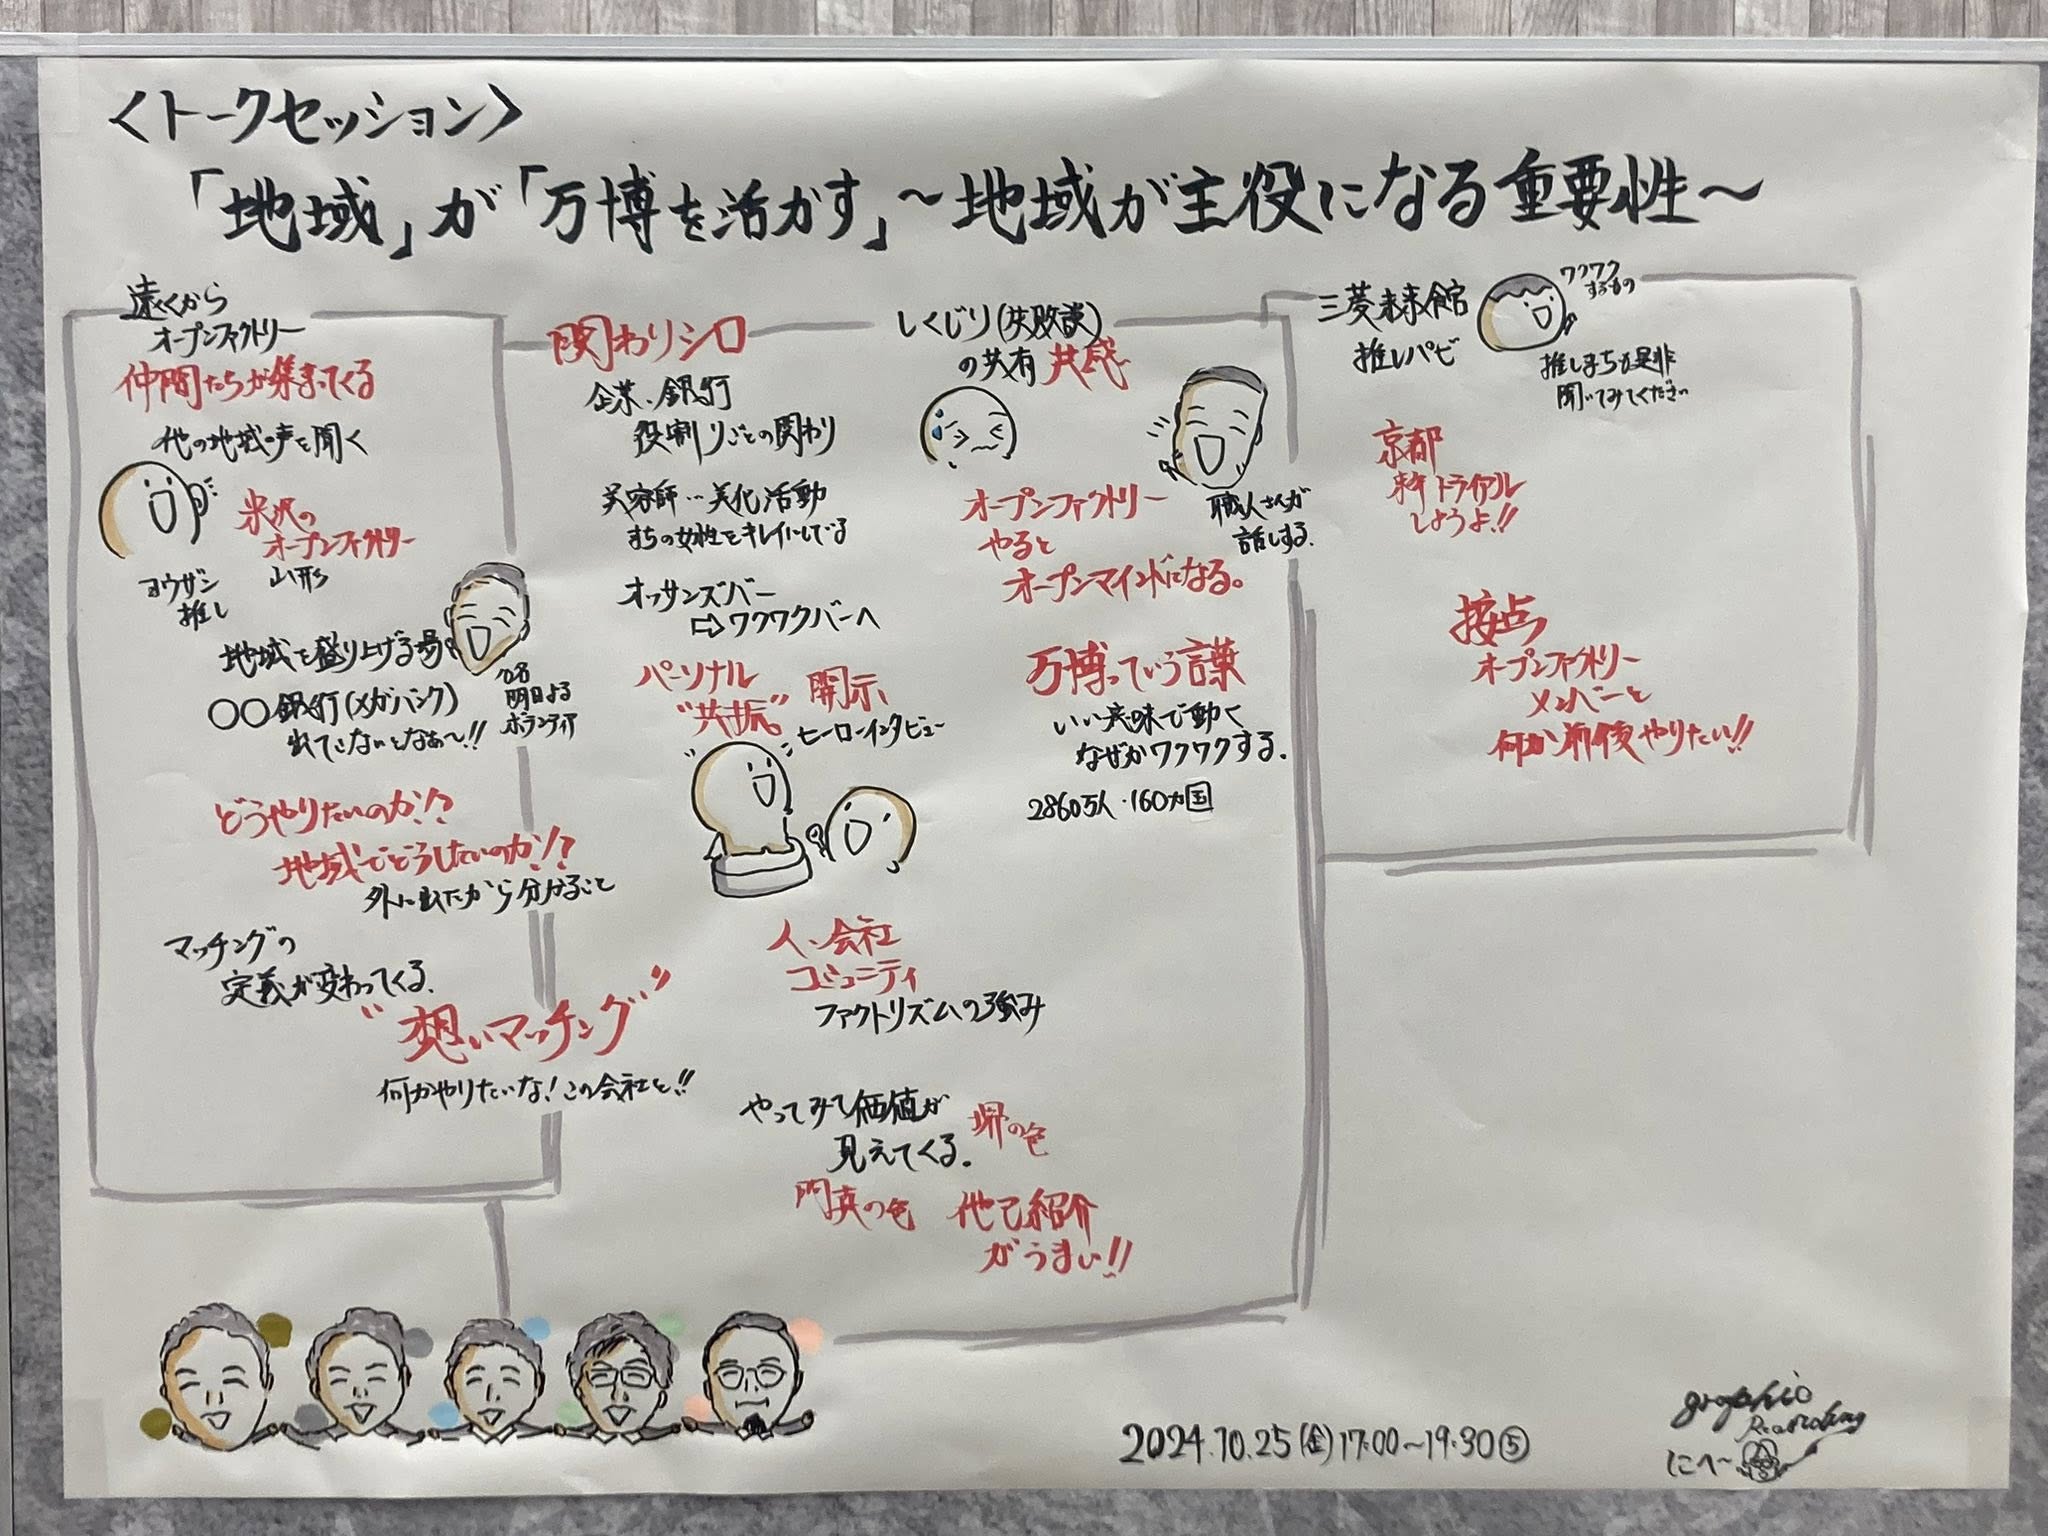 〈トークセッション〉
「地域」が「万博を活かす」～地域が主役になる重要性～
遠くから
オープンファクトリー
仲間たちが集まってくる
他の地域の声を聞く
米沢の
オープンファクトリー
山形
ヨウザン
推し
地域を盛り上げる場
〇〇銀行(メガバンク)
出てこないとなぁ～!!
明日よる
ボランティア
どうやりたいのか!?
地域でどうしたいのか!?
外に出たから分かること
マッチングの
定義が変わってくる.
"想いマッチング"
何かやりたいな!この会社と!!
関わりシロ
企業、銀行
役割りごとの関わり
美容師…美化活動
まちの女性をキレイにしている
オッサンズバー
⇨ワクワクバーへ
パーソナル
"共振。" 開示、
ヒーローインタビュー
人、会社
コミュニティ
ファクトリズムの強み
やってみて価値が
見えてくる。
堺の色
門真の色 他己紹介
がうまい!!
しくじり(失敗談)
の共有 共感
オープンファクトリー
やると
オープンマインドになる。
職人さんが
話しする.
万博っていう言葉
いい意味で動く
なぜかワクワクする.
2860万人・160カ国
三菱未来館
推しパビ
ワクワク
するもの
推しまちも是非
聞いてみてください
京都
来年トライアル
しようよ!!
接点
オープンファクトリー
メンバーと
何か前後やりたい!!
2024.10.25(金)17:00～19:30⑤
graphic
Recording
にへ～